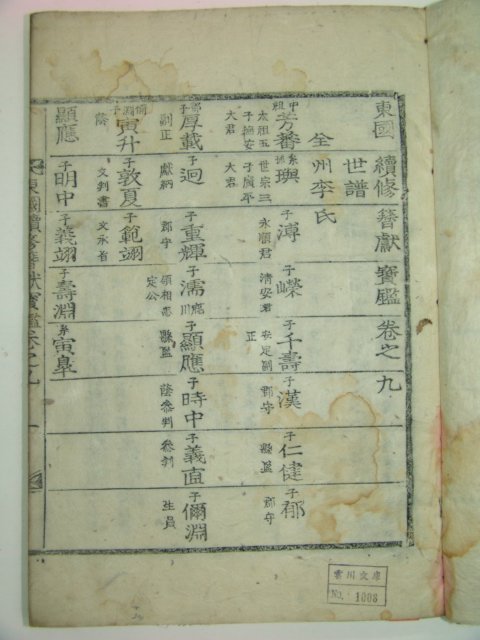 東國續修簪獻寶鑑卷之九
世譜
全州李氏
中祖芳蕃 太祖五子撫安大君 璵 世宗三子廣平大君 子溥 永順君 子嶸 淸安君 子千壽 安定副正 子漢 郡守 子仁健 縣監 子郁 郡守
郁子厚載 副正 子迥 獻納 子重輝 郡守 子濡 鹿川 領相 定公 子顯應 縣監 子時中 蔭參判 子義直 參判 子儞淵 生員
儞淵子寅升 蔭 子敦夏 文判書 子範翊 文承旨
顯應 子明中 子義翊 子壽淵 系寅皐
東國續修簪獻寶鑑卷之九 一
雲川文庫
No. 1008